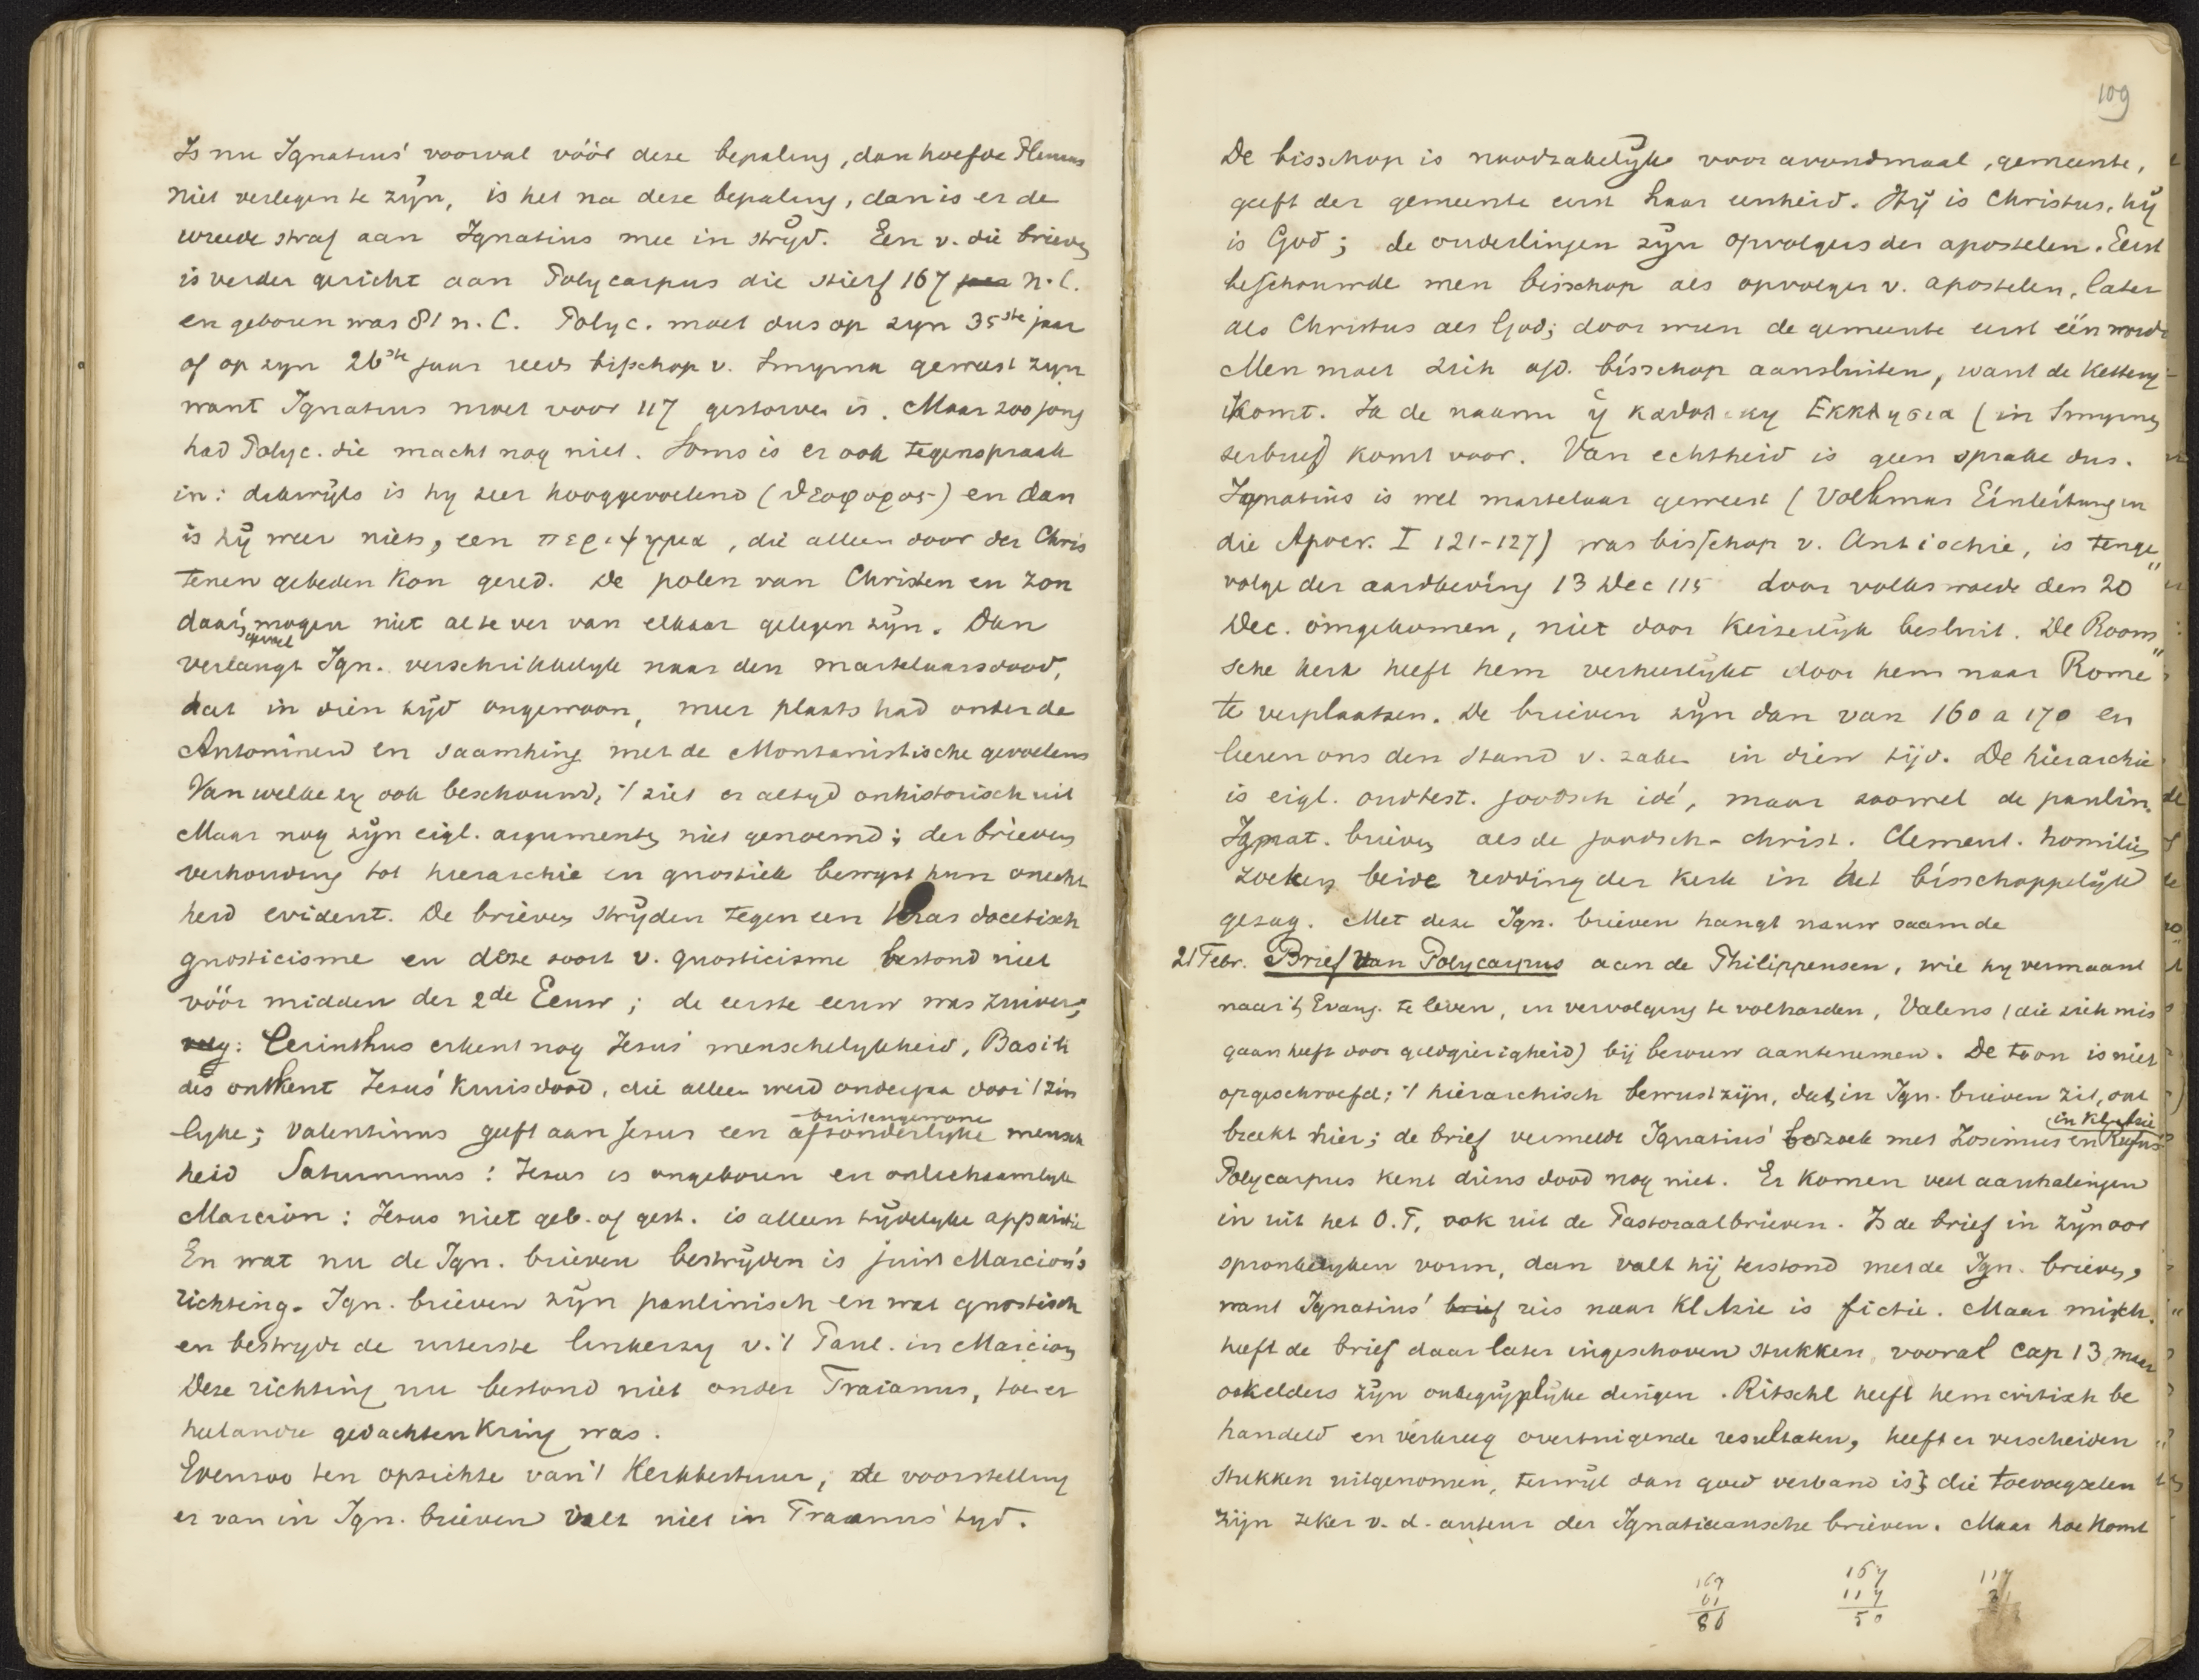 Is nu Ignatius' voorval vóór deze bepaling, dan hoefde Plinius
niet verlegen te zijn, is het na deze bepaling, dan is er de
wreede straf aan Ignatius mee in strijd. Een v. die brieven
is verder gericht aan Polycarpus die stierf 167 n. C.
en geboren was 81 n. C. Polyc. moet dus op zyn 35ste jaar
of op zyn 26ste jaar reeds bisschop v. Smyrna geweest zyn
want Ignatius moet voor 117 gestorven is. Maar zoo jong
had Polyc. die macht nog niet. Soms is er ook tegenspraak
in: dikwijls is hy zeer hooggevoelend (θεοφορος) en dan
is hij weer niets, een περιψημα, die alleen door der Chris
tenen gebeden kon gered. De polen van Christen en zon
daars gevoel mogen niet al te ver van elkaar gelegen zijn. Dan
verlangt Ign. verschrikkelyk naar den martelaarsdood,
dat in dien tijd ongewoon, meer plaats had onder de
Antoninen en saamhing met de Montanistische gevoelens
Van welke zy ook beschouwd, 't ziet er altyd onhistorisch uit
Maar nog zijn eigl. argumenten niet genoemd; der brieven
verhouding tot hierarchie en gnostiek bewyst hun onecht
heid evident. De brieven strijden tegen een kras docetisch
gnosticisme en deze soort v. gnosticisme bestond niet
vóór midden der 2de Eeuw; de eerste eeuw was zuiver;
Cerinthus erkent nog Jesus' menschelykheid, Basili
des ontkent Jesus' kruisdood, die alleen werd ondergaan door 't zin
lyke; Valentinus geeft aan Jesus een afzonderlyke buitengewone mensch
heid Saturninus: Jesus is ongeboren en onlichaamlyk
Marcion: Jesus niet geb. of gest. is alleen tijdelyke apparitie
En wat nu de Ign. brieven bestrijden is juist Marcion's
richting. Ign. brieven zijn paulinisch en wat gnostisch
en bestryde de uiterste linkerzy v. 't Paul. in Marcion
Deze richting nu bestond niet onder Traianus, toen er
heel andre gedachtenkring was.
Evenzoo ten opzichte van 't Kerkbestuur, de voorstelling
er van in Ign. brieven valt niet in Traianus' tyd.
109
De bisschop is noodzakelijk voor avondmaal, gemeente,
geeft der gemeente eerst haar eenheid. Hij is Christus, hij
is God; de ouderlingen zijn opvolgers der apostelen. Eerst
beschouwde men bisschop als opvolger v. apostelen, later
als Christus als God; door wien de gemeente eerst één wordt
Men moet zich a/d. bisschop aansluiten, want de kettery
komt. Ja de naam ἡ καθολικη Εκκλησια (in Smyrna
serbrief) komt voor. Van echtheid is geen sprake dus.
Ignatius is wel martelaar geweest (Volkmar Einleitung in
die Apocr. I 121-127) was bisschop v. Antiochie, is tenge"
volge der aardbeving 13 Dec 115 door volkswoede den 20
Dec. omgekomen, niet door keizerlijk besluit. De Room"
sche kerk heeft hem verheerlijkt door hem naar Rome
te verplaatsen. De brieven zijn dan van 160 a 170 en
leeren ons den stand v. zaken in dien tijd. De hierarchie
is eigl. oudtest. joodsch idé, maar zoowel de paulin.
Ignat. brieven als de joodsch-christ. Clement. homilien
zoeken beide redding der kerk in het bisschoppelijk
gezag. Met deze Ign. brieven hangt nauw saam de
21 Febr. Brief Van Polycarpus aan de Philippensen, wie hy vermaant
naar 't Evang. te leven, in vervolging te volharden, Valens (die zich mis
gaan heeft door geldgierigheid) bij berouw aan te nemen. De toon is niet
opgeschroefd; 't hierarchisch bewustzijn, dat in Ign. brieven zit, ont
breekt hier; de brief vermeldt Ignatius' bezoek met Zosimus en Rufus in Kl. Azie
Polycarpus kent diens dood nog niet. Er komen veel aanhalingen
in uit het O.T, ook uit de Pastoraalbrieven. Is de brief in zijn oor
spronkelyken vorm, dan valt hij terstond met de Ign. brieven,
want Ignatius' brief reis naar Kl Azie is fictie. Maar misch.
heeft de brief daar later ingeschoven stukken, vooral cap 13 maar
ook elders zijn onbegrijplijke dingen. Ritschl heeft hem critisch be
handeld en verkreeg overtuigende resultaten, heeft er verscheiden
stukken uitgenomen, terwijl dan goed verband is; die toevoegselen
zijn zeker v. d. auteur der Ignatiaansche brieven. Maar hoe komt
167 167 117
81 117
86 50